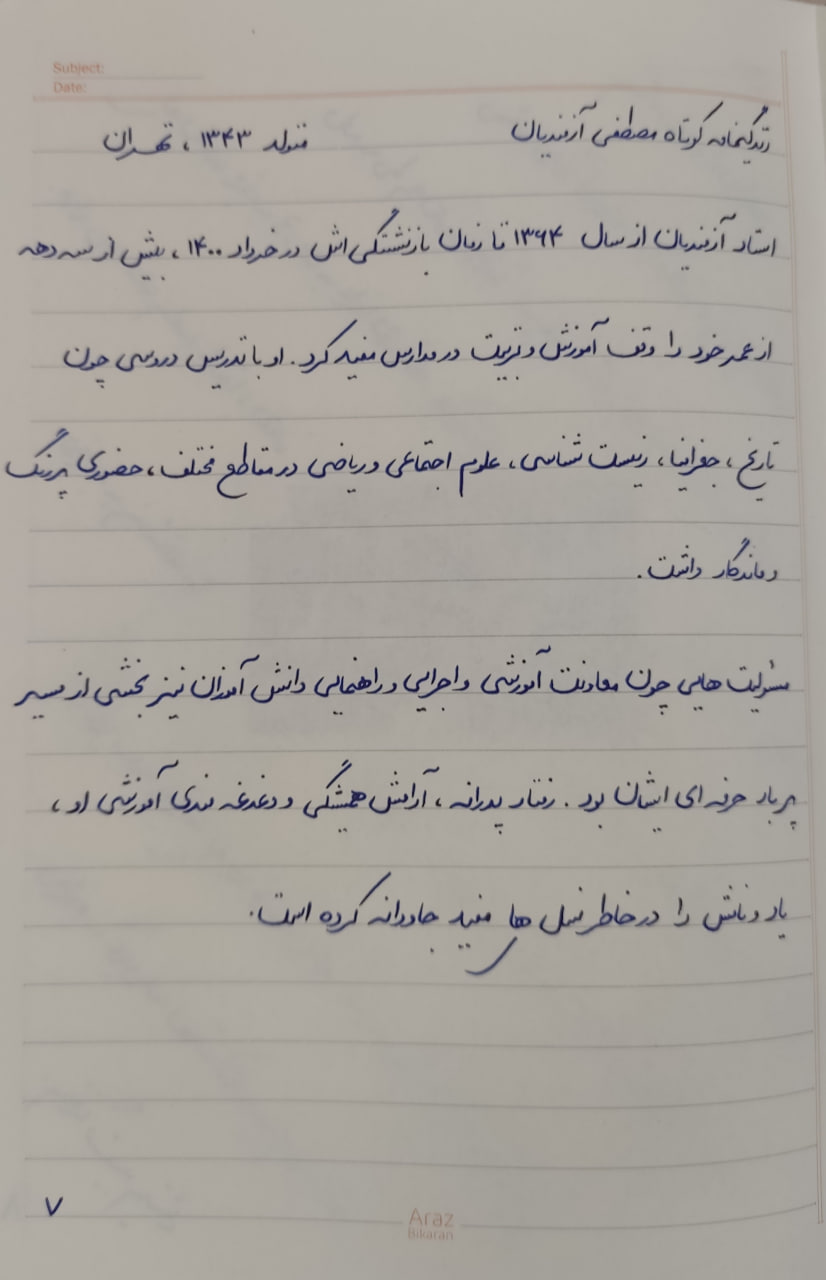 Subject:
Date:
زندگینامه کوتاه مصطفی آزمندیان متولد ۱۳۴۳ ، تهران
استاد آزمندیان از سال ۱۳۶۴ تا زمان بازنشستگی اش در خرداد ۱۴۰۰ ، بیش از سه دهه
از عمر خود را وقف آموزش و تربیت در مدارس مفید کرد . او با تدریس دروسی چون
تاریخ ، جغرافیا ، زیست شناسی ، علوم اجتماعی و ریاضی در مقاطع مختلف ، حضوری پررنگ
و ماندگار داشت .
مسئولیت هایی چون معاونت آموزشی و اجرایی و راهنمایی دانش آموزان نیز بخشی از مسیر
پربار حرفه ای ایشان بود . رفتار پدرانه ، آرامش همیشگی و دغدغه مندی آموزشی او ،
یاد و نامش را در خاطر نسل ها مفید جاودانه کرده است .
۷
Araz
Bikaran